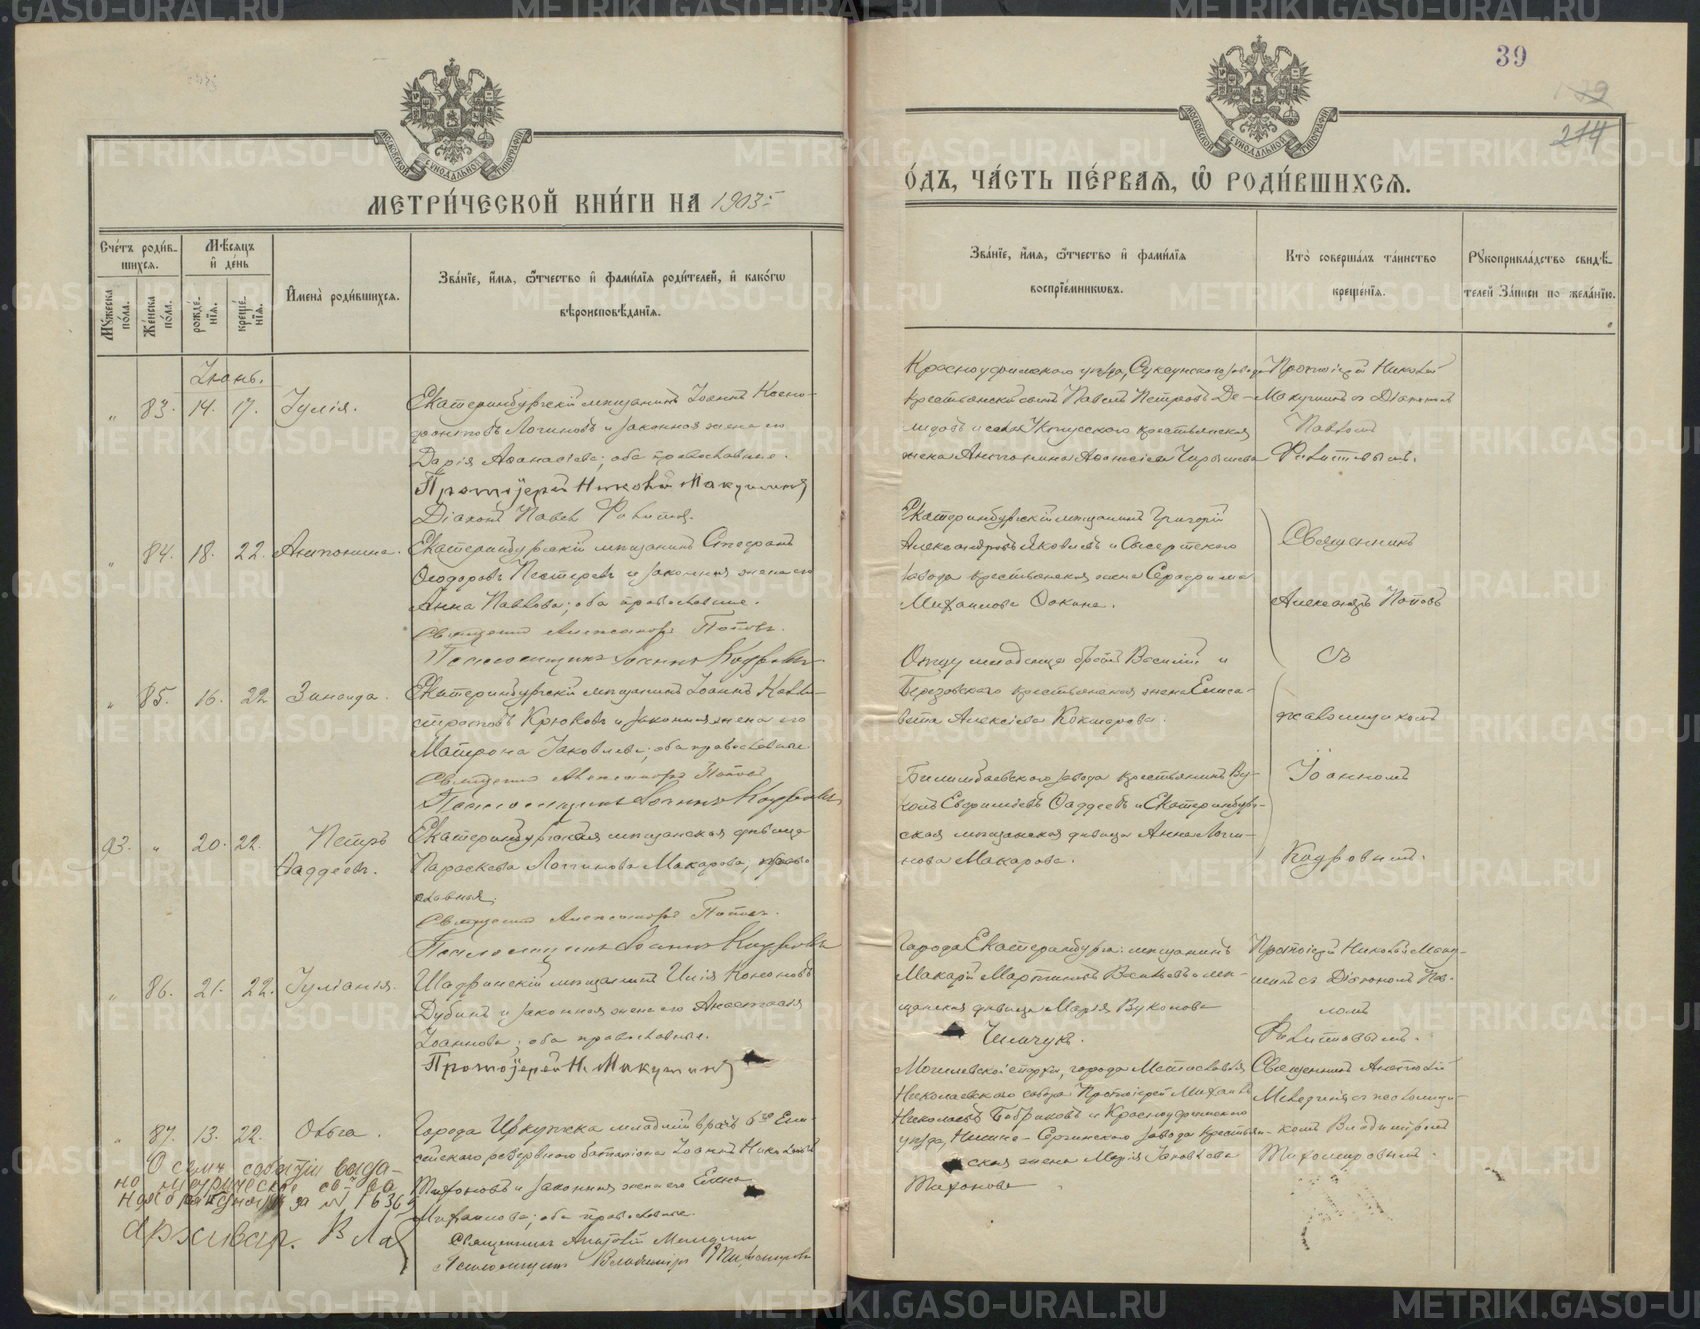 39
214
МЕТРИ́ЧЕСКОЙ КНИ́ГИ НА 1903 г.
О́ДЪ, ЧА́СТЬ ПЕ́РВАѦ, Ѡ РОДИ́ВШИХСѦ.
Сче́тъ роди́вшихся.
Мѣ́сяцъ и̂ де́нь
Мꙋ́жеска по́ла.
Же́нска по́ла.
рожде́нїя.
креще́нїя.
И̂мена̀ роди́вшихся.
Зва́нїе, и̂́мя, ѻ҆́тчество и̂ фами́лїя роди́телей, и̂ како́гѡ
вѣроисповѣ́данїя.
Зва́нїе, и̂́мя, ѻ҆́тчество и̂ фами́лїя
воспрїе́мникѡвъ.
Кто̀ соверша́лъ та́инство
креще́нїя.
Рꙋкоприкла́дство свидѣ́телей за́писи по жела́нїю.
Іюнь.
" 83. 14. 17. Іулія.
Екатеринбургскій мѣщанинъ Іоаннъ Ксено-
фонтовъ Логиновъ и законная жена его
Дарія Аѳанасіева; оба православные.
Протоіерей Николай Макушинъ
Діаконъ Павелъ
Красноуфимскаго уѣзда, Суксунскаго завода
крестьянскій сынъ Павелъ Петровъ Де-
мидовъ и села крестьянская
жена Антонина Аѳанасіева
Протоіерей Николай
Макушинъ съ Діакономъ
Павломъ
" 84. 18. 22. Антонина.
Екатеринбургскій мѣщанинъ Стефанъ
Ѳеодоровъ Пестеревъ и законная жена его
Анна Павлова; оба православные.
Священникъ Александръ Поповъ.
Псаломщикъ Іоаннъ Кадровъ.
Екатеринбургскій мѣщанинъ Григорій
Александровъ Яковлевъ и Сысертскаго
завода крестьянская жена Серафима
Михаилова
Священникъ
Александръ Поповъ
съ
псаломщикомъ
Іоанномъ
" 85. 16. 22 Зинаида.
Екатеринбургскій мѣщанинъ Іоаннъ Кали-
стратовъ Крюковъ и законная жена его
Матрона Іаковлева; оба православные.
Священникъ Александръ Поповъ
Псаломщикъ Іоаннъ
Отцу младенца братъ Василій и
Березовскаго крестьянская жена Елиса-
вета Алексіева Кокшарова.
93. " 20. 22. Петръ
Ѳаддеевъ.
Екатеринбургская мѣщанская дѣвица
Параскева Логинова Макарова, право-
славная.
Священникъ Александръ Поповъ.
Псаломщикъ Іоаннъ
Билимбаевскаго завода крестьянинъ Ву-
колъ Евфиміевъ Ѳаддеевъ и Екатеринбург-
ская мѣщанская дѣвица Анна Логи-
нова Макарова.
" 86. 21. 22. Іуліанія.
Шадринскій мѣщанинъ Илія Кононовъ
Дубинъ и законная жена его Анастасія
Іоаннова; оба православные.
Протоіерей Н. Макушинъ
Города Екатеринбурга: мѣщанинъ
Макарій Мартиновъ Васильевъ и мѣ-
щанская дѣвица Марія Вуколова
Протоіерей Николай Маку-
шинъ съ Діакономъ Пав-
ломъ
" 87. 13. 22. Ольга.
Города Иркутска младшій врачъ 6го Ени-
сейскаго резервнаго баталіона Іоаннъ Николаевъ
Тихоновъ и законная жена его Елена
Михаилова; оба православные.
Священникъ Анатолій
Псаломщикъ Владиміръ Тихомировъ
Могилевской епархіи, города Мстиславля,
Николаевскаго собора Протоіерей Михаилъ
Николаевъ Бобриковъ и Красноуфимскаго
уѣзда, Нижне-Сергинскаго завода крестьян-
ская жена Марія Іаковлева
Тихонова
Священникъ Анатолій
съ псаломщи-
комъ Владиміромъ
Тихомировымъ.
О семъ событіи выда-
но метрическое св-во
за № 1636
архивар.